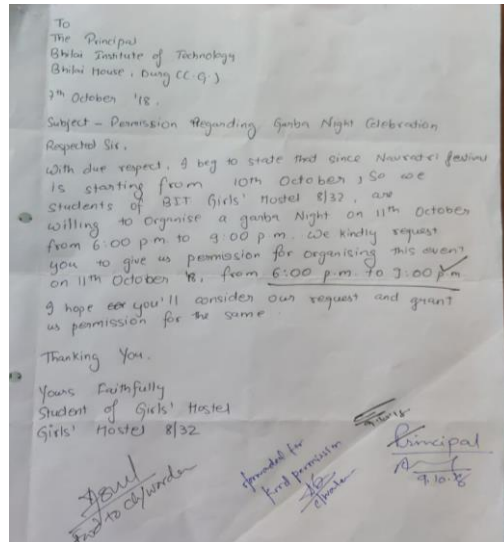 To
The Principal
Bhilai Institute of Technology
Bhilai House, Durg (C.G.)
7th October '18.
Subject - Permission Regarding Garba Night Celebration
Respected Sir,
With due respect, I beg to state that since Navratri festival
is starting from 10th October, So we
students of BIT Girls' Hostel 8/32, are
willing to Organise a garba Night on 11th October
from 6:00 p.m. to 9:00 p.m. We kindly request
you to give us permission for organising this event
on 11th October '18, from 6:00 p.m. to 9:00 p.m.
I hope you'll consider our request and grant
us permission for the same.
Thanking You.
Yours Faithfully
Student of Girls' Hostel
Girls' Hostel 8/32
Principal
Fwd to Ch/warden
forwarded for
kind permission